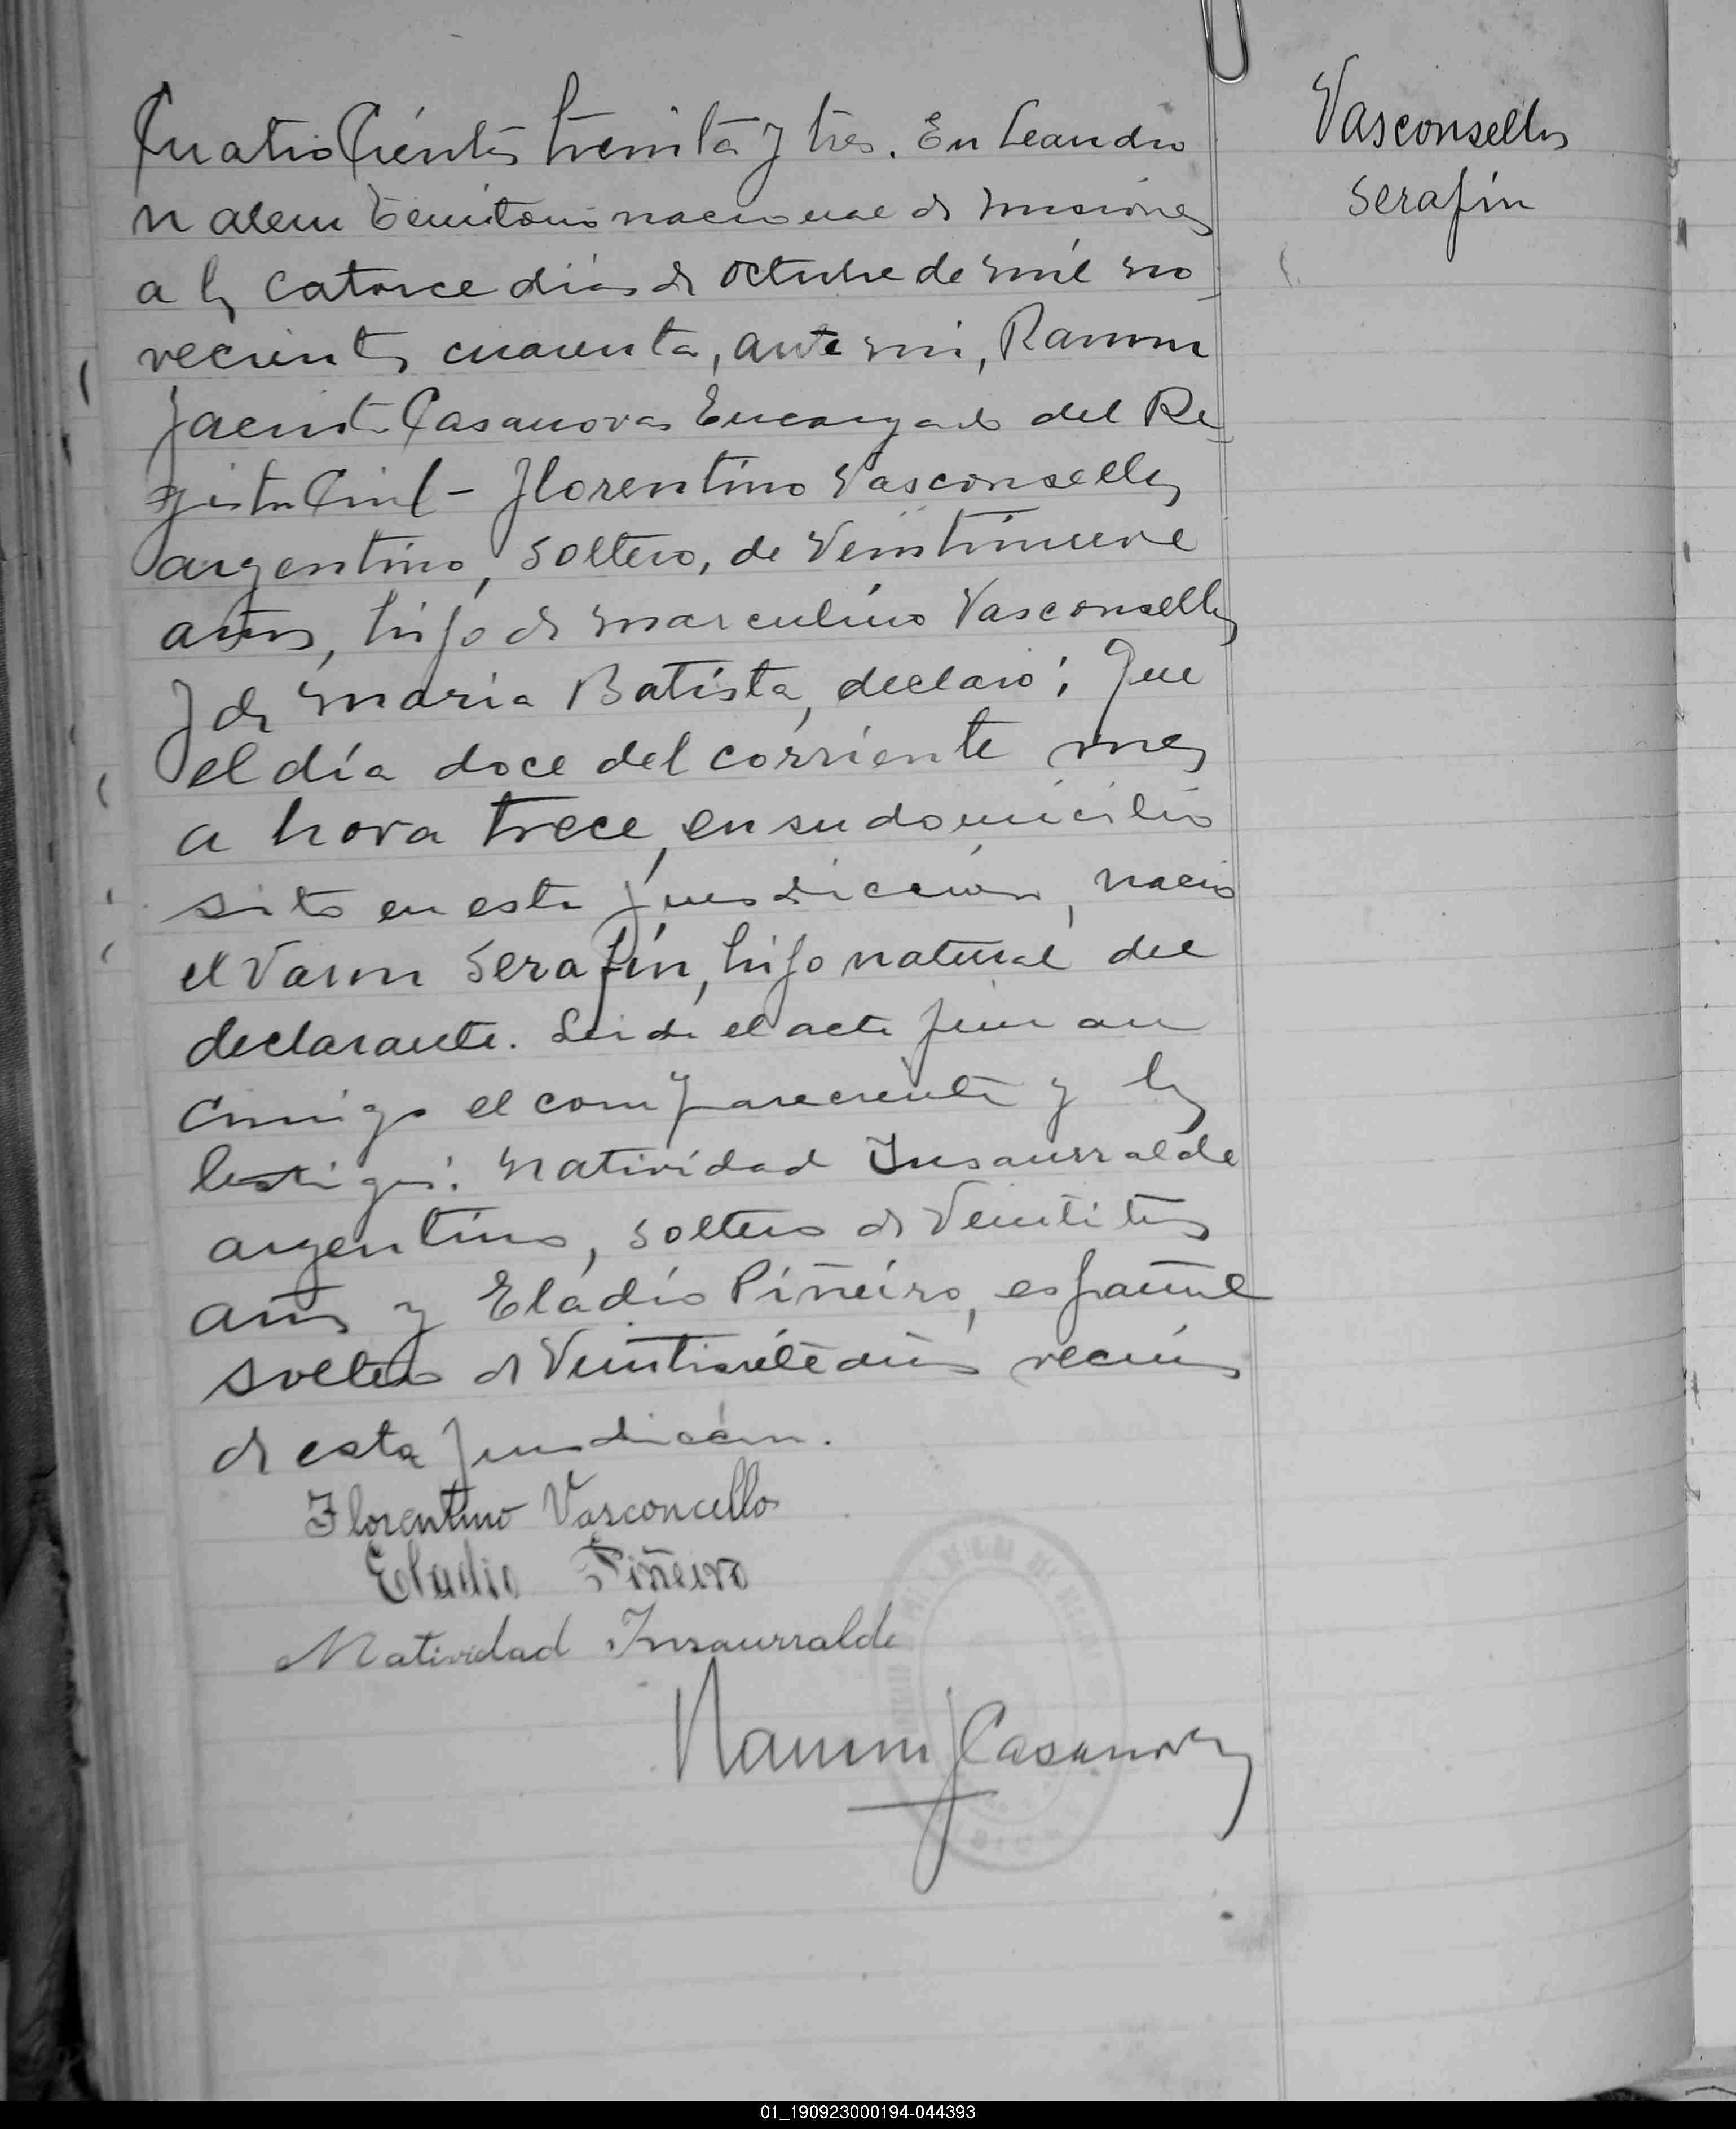 Cuatro Cientos treinta y tres. En Leandro
N Alem Territorio nacional de Misiones
a los catorce dias de octubre de mil no
vecientos cuarenta, ante mi, Ramon
Jacinto Casanovas Encargado del Re
gistro Civil - Florentino Vasconsellos
argentino, soltero, de Veintinueve
años, hijo de Marculino Vasconsellos
y de Maria Batista, declaró: Que
el día doce del corriente mes
a hora trece, en su domicilio
sito en esta jurisdicción, nacio
el Varon Serafín, hijo natural del
declarante. Leida el acta firman
conmigo el compareciente y los
testigos: Natividad Insaurralde
argentino, soltero de Veintitres
años y Eladio Piñeiro, español
soltero de Veintisiete años vecinos
de esta jurisdicción.
Florentino Vasconcellos
Eladio Piñeiro
Natividad Insaurralde
Ramon J Casanovas
Vasconsellos
Serafín
01_190923000194-044393